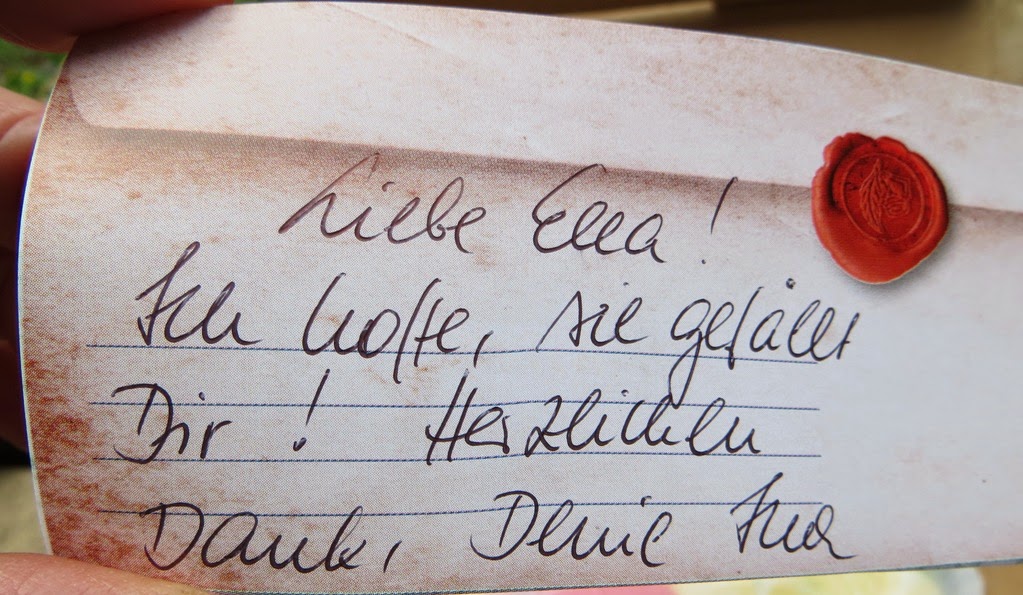 Liebe Ella!
Ich hoffe, sie gefällt
Dir! Herzlichen
Dank, Deine Ina